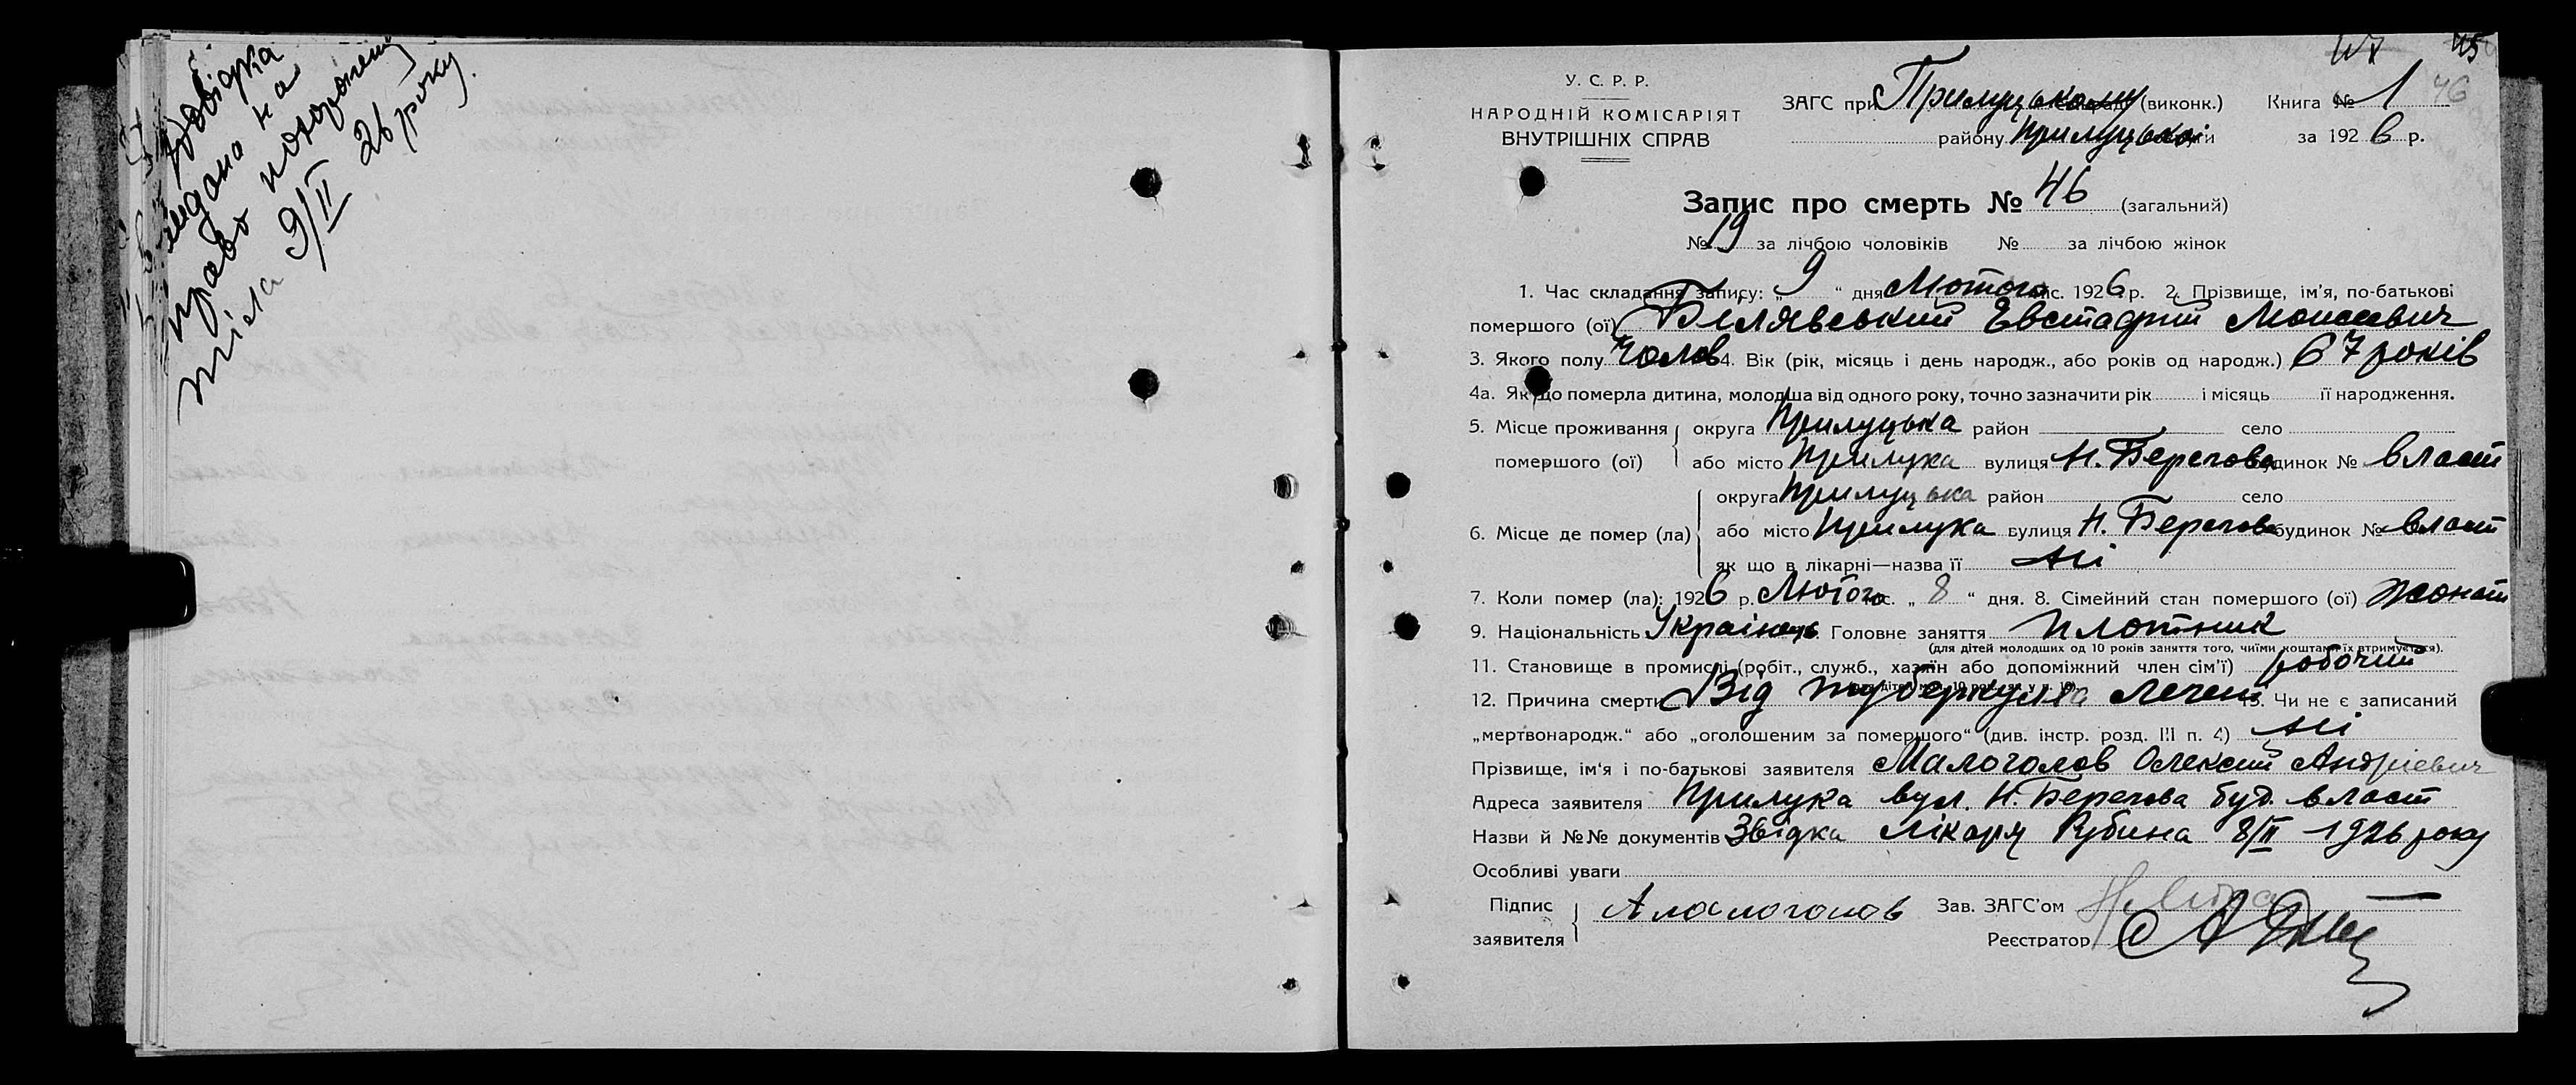 Довідка
видана на
право похорону
тіла 9/II 26 року.
45
46
У. С. Р. Р.
НАРОДНІЙ КОМІСАРІЯТ
ВНУТРІШНІХ СПРАВ
ЗАГС при Прилуцькому (виконк.) Книга № 1
району Прилуцької округи за 1926 р.
Запис про смерть № 46 (загальний)
№ 19 за лічбою чоловіків № за лічбою жінок
1. Час складання запису: „ 9 “ дня Лютого міс. 1926 р. 2. Прізвище, ім'я, по-батькові
помершого (ої) Білявський Евстафій Моисеевич
3. Якого полу Чолов 4. Вік (рік, місяць і день народж., або років од народж.) 67 років
4а. Як що померла дитина, молодша від одного року, точно зазначити рік і місяць її народження.
5. Місце проживання помершого (ої) округа Прилуцька район село
або місто Прилука вулиця Н. Берегова будинок № власт
6. Місце де помер (ла) округа Прилуцька район село
або місто Прилука вулиця Н. Берегова будинок № власт
як що в лікарні—назва її ні
7. Коли помер (ла): 1926 р. Лютого міс. „ 8 “ дня. 8. Сімейний стан помершого (ої) жонат
9. Національність Українець Головне заняття плотник
(для дітей молодших од 10 років заняття того, чиїми коштами їх втримується).
11. Становище в промислі (робіт., служб., хазяїн або допоміжний член сім'ї) робочий
12. Причина смерти Від туберкульоза легень 13. Чи не є записаний
„мертвонародж.“ або „оголошеним за помершого“ (див. інстр. розд. III п. 4) ні
Прізвище, ім'я і по-батькові заявителя Малоголов Олексій Андрієвич
Адреса заявителя Прилука вул. Н. Берегова буд. власт
Назви й №№ документів Звідка лікаря Рубина 8/II 1926 року
Особливі уваги
Підпис заявителя А Малоголов Зав. ЗАГС'ом
Реєстратор